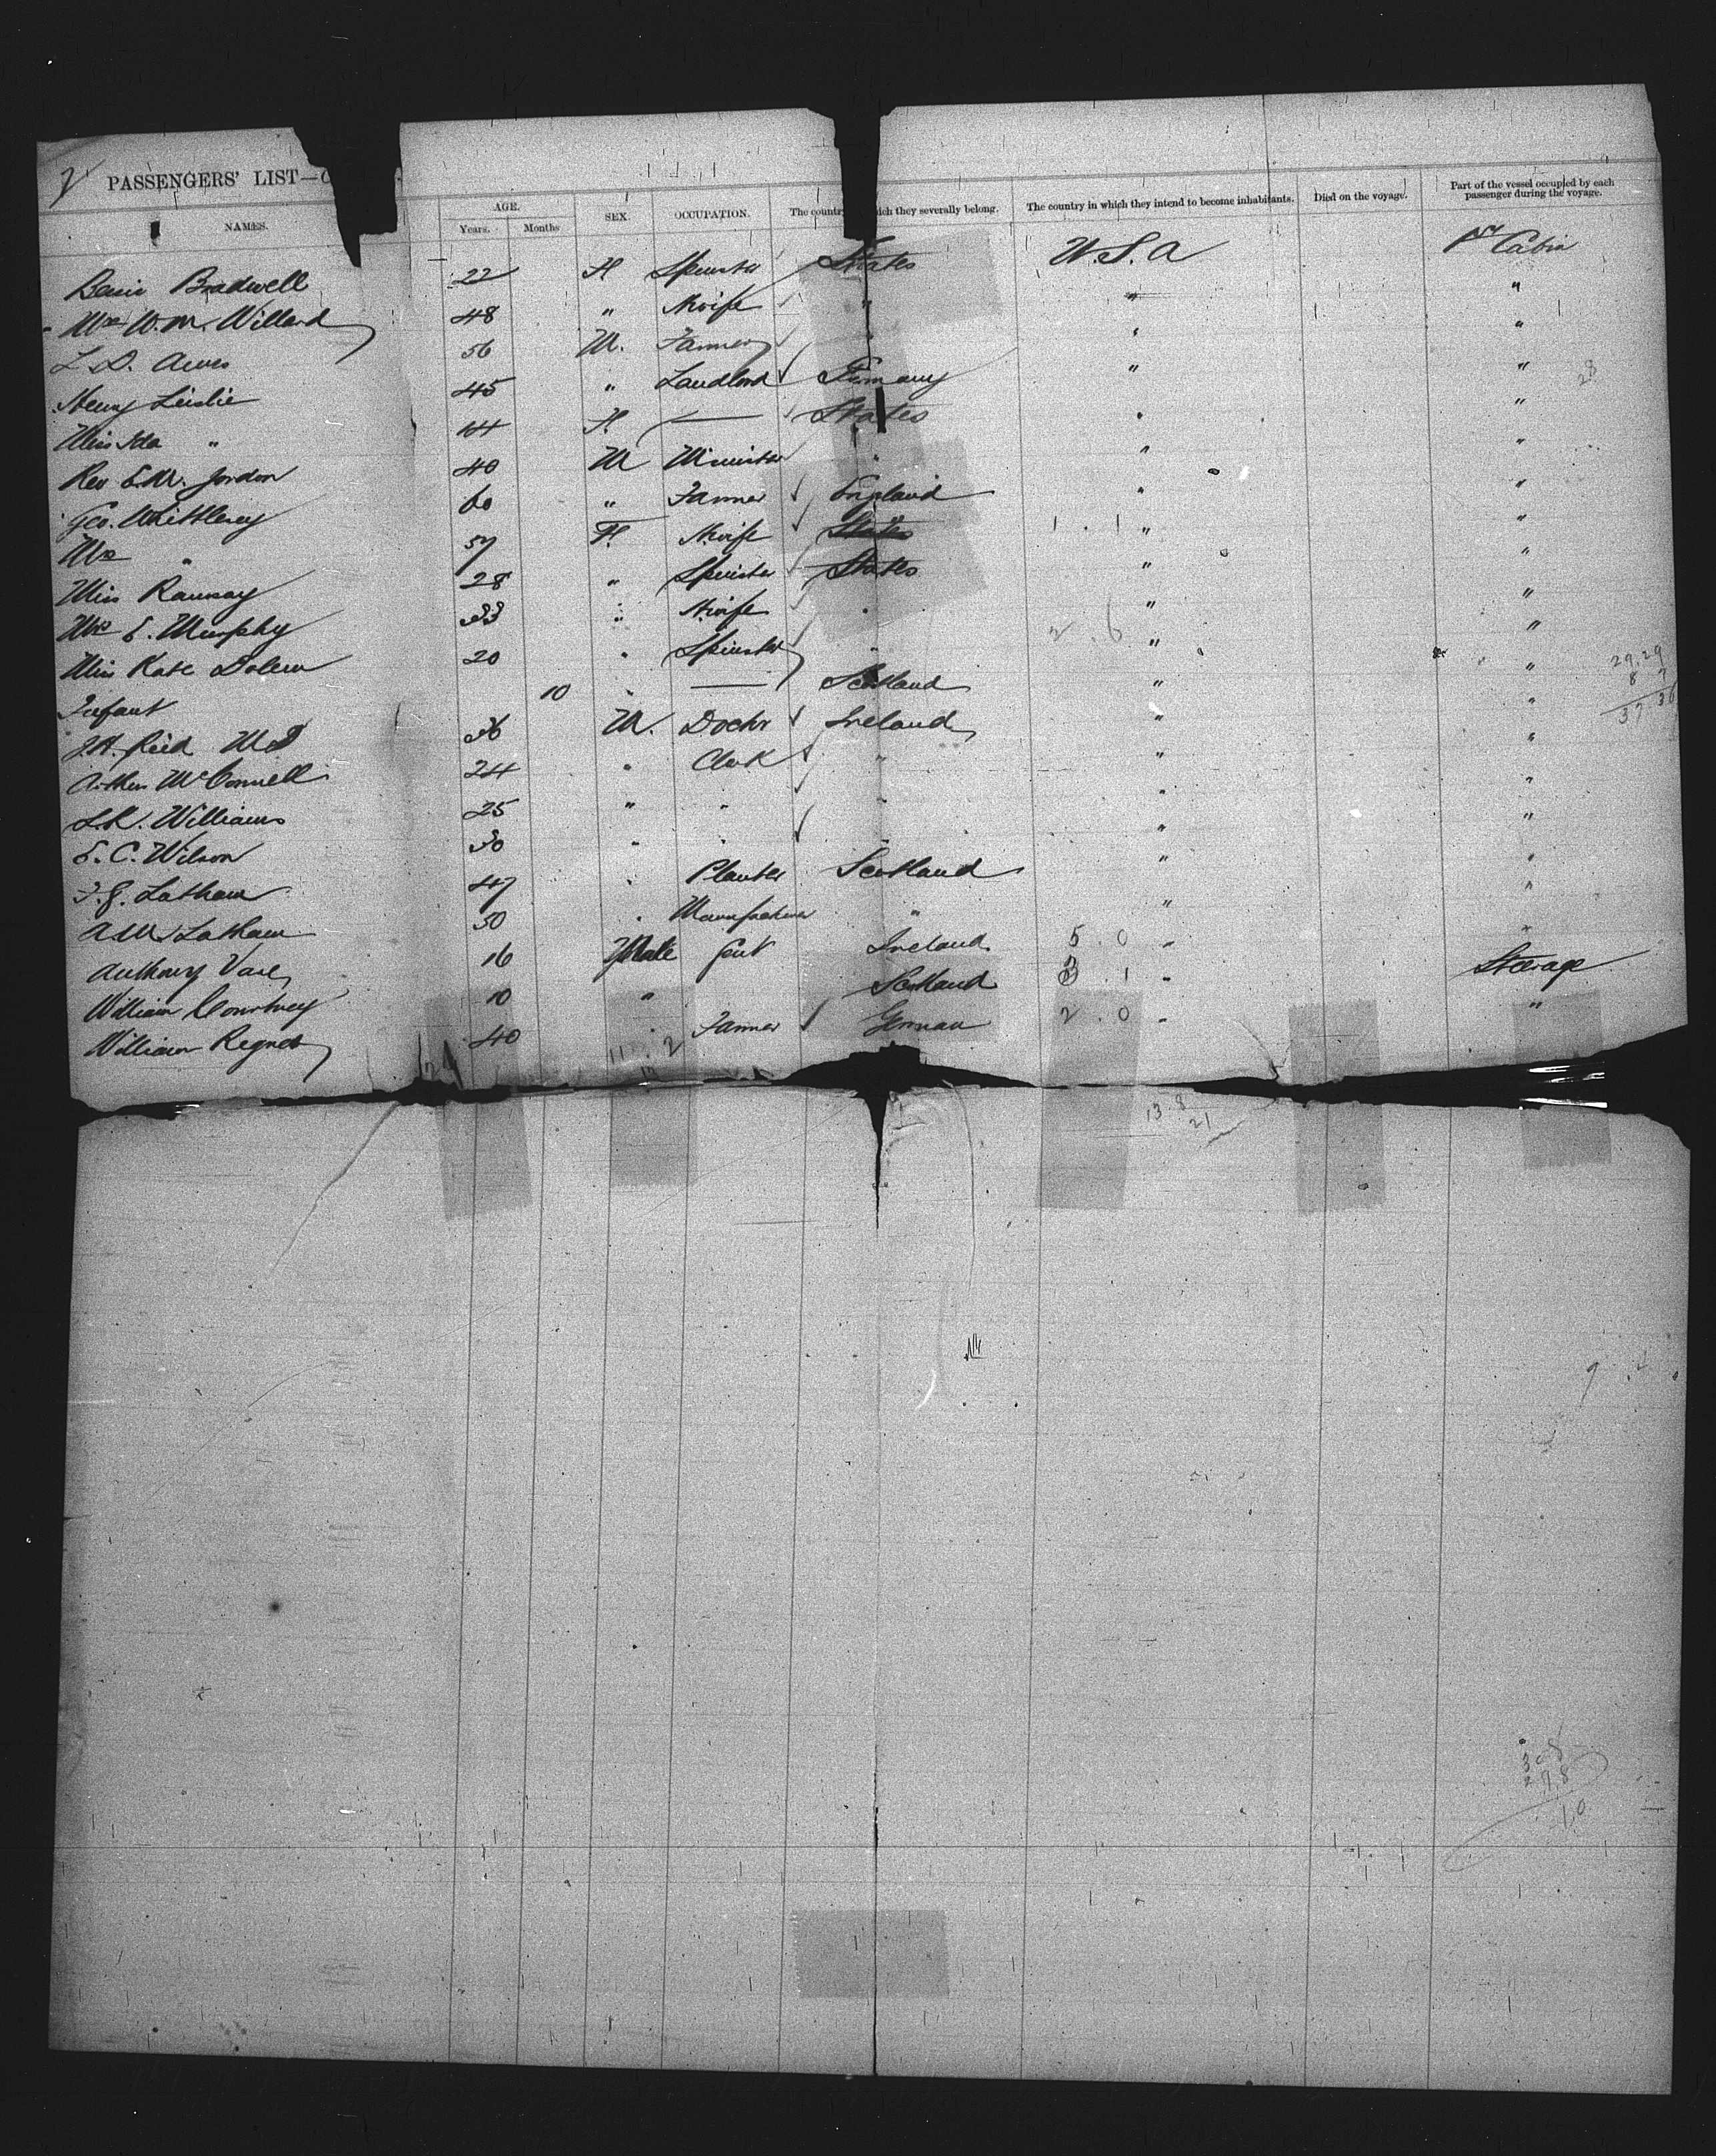 2 PASSENGERS' LIST—C
NAMES. AGE. Years. Months SEX. OCCUPATION. The country ich they severally belong. The country in which they intend to become inhabitants. Died on the voyage. Part of the vessel occupied by each passenger during the voyage.
Bessie Bradwell 22 F Spinster States U.S.A 1st Cabin
Mrs W.M. Willard 48 " Wife " " "
L.D. 56 M. Farmer " " "
Henry Leislie 45 " Landlord Germany " "
Miss Ida " 14 F. — States " "
Rev E.M. Jordon 40 M Minister " " "
Geo. Whittlesey 60 " Farmer England " "
Mrs " 57 F. Wife States 1 . 1 " "
Miss Ramsay 28 " Spinster States " "
Mrs E. Murphy 33 " Wife " " "
Miss Kate Dolem 20 " Spinster " 2 . 6 " "
Infant 10 " — Scotland " "
J.H. Reid MD 36 M. Doctor Ireland " "
Arthur McConnell 24 " Clerk " " "
L.K. Williams 25 " " " " "
E.C. Wilson 30 " " " " "
T.G. Latham 47 " Planter Scotland " "
A.M. Latham 50 " Manufacturer " " "
Anthony 16 Male Gent Ireland 5 . 0 " "
William Courtney 10 " Scotland 3 . 1 " Steerage
William Regnet 40 " Farmer German 2 . 0 " "
29.29
8 7
37.36
11 . 2
13.8
21
308
298
10